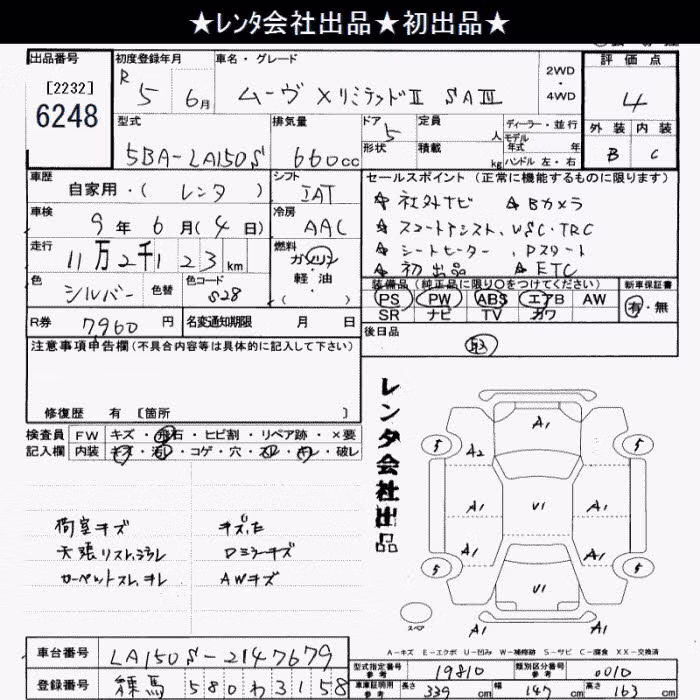 ★ﾚﾝﾀ会社出品★初出品★
出品番号 初度登録年月 車名・グレード 評価点
[2232] 6248
R 5 6月 ムーヴ XリミテッドⅡ SAⅢ 2WD・4WD 4
型式 排気量 ドア 5 定員 人 ディーラー・並行 外装 内装
5BA-LA150S 660cc 形状 積載 kg モデル年式 年 ハンドル 左・右 B C
車歴 自家用・( レンタ ) シフト IAT セールスポイント (正常に機能するものに限ります)
☆ 社外ナビ ☆ Bカメラ
車検 9年 6月 ( 4日) 冷房 AAC ☆ スマートアシスト、VSC・TRC
走行 11万2千123km 燃料 ガソリン・軽油 ☆ シートヒーター、Pスタート
☆ 初出品 ☆ ETC
色 シルバー 色替 色コード S28 装備品 (純正品に限り○をつけてください) 新車保証書
PS PW ABS エアB AW 有・無
SR ナビ TV カワ
R券 7960円 名変通知期限 月 日 後日品
取
注意事項申告欄 (不具合内容等は具体的に記入して下さい)
修復歴 有 〔箇所 〕
検査員 FW キズ・飛石・ヒビ割・リペア跡・×要
記入欄 内装 キズ・汚れ・コゲ・穴・スレ・キレ・破レ
レンタ会社出品
荷室キズ キズ、亡
天張リスレ、ヨゴレ Dミラーキズ
カーペットスレ、キレ AWキズ
A1
5 5
A2
A1 U1 A1
A1 A1
5 5
U1
スペア A1 A1
A-キズ E-エクボ U-凹み W-補修跡 S-サビ C-腐食 XX-交換済
車台番号 LA150S-2147679
型式指定番号 参考 19810 類別区分番号 参考 0010
登録番号 練馬 580 わ 3158
車庫証明用 参考 長さ 339cm 幅 147cm 高さ 163cm